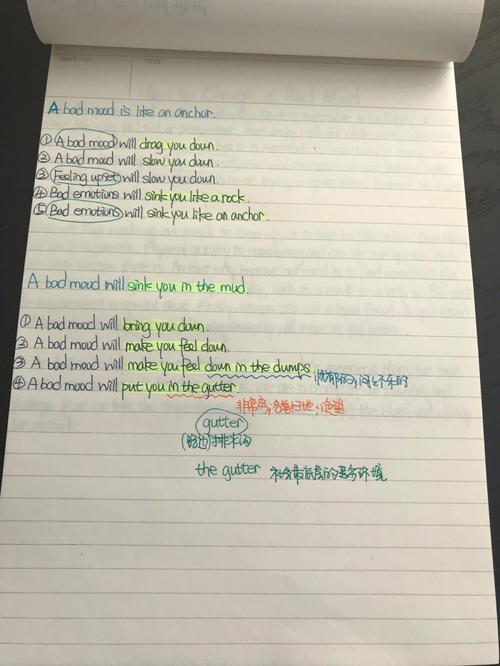 DATE / NO.
TITLE
A bad mood is like an anchor.
① A bad mood will drag you down.
② A bad mood will slow you down.
③ Feeling upset will slow you down.
④ Bad emotions will sink you like a rock.
⑤ Bad emotions will sink you like an anchor.
A bad mood will sink you in the mud.
① A bad mood will bring you down.
② A bad mood will make you feel down.
③ A bad mood will make you feel down in the dumps. 忧郁的;闷闷不乐的
④ A bad mood will put you in the gutter.
非常穷;名誉扫地;绝望
gutter
(路边)排水沟
the gutter 社会最底层的恶劣环境